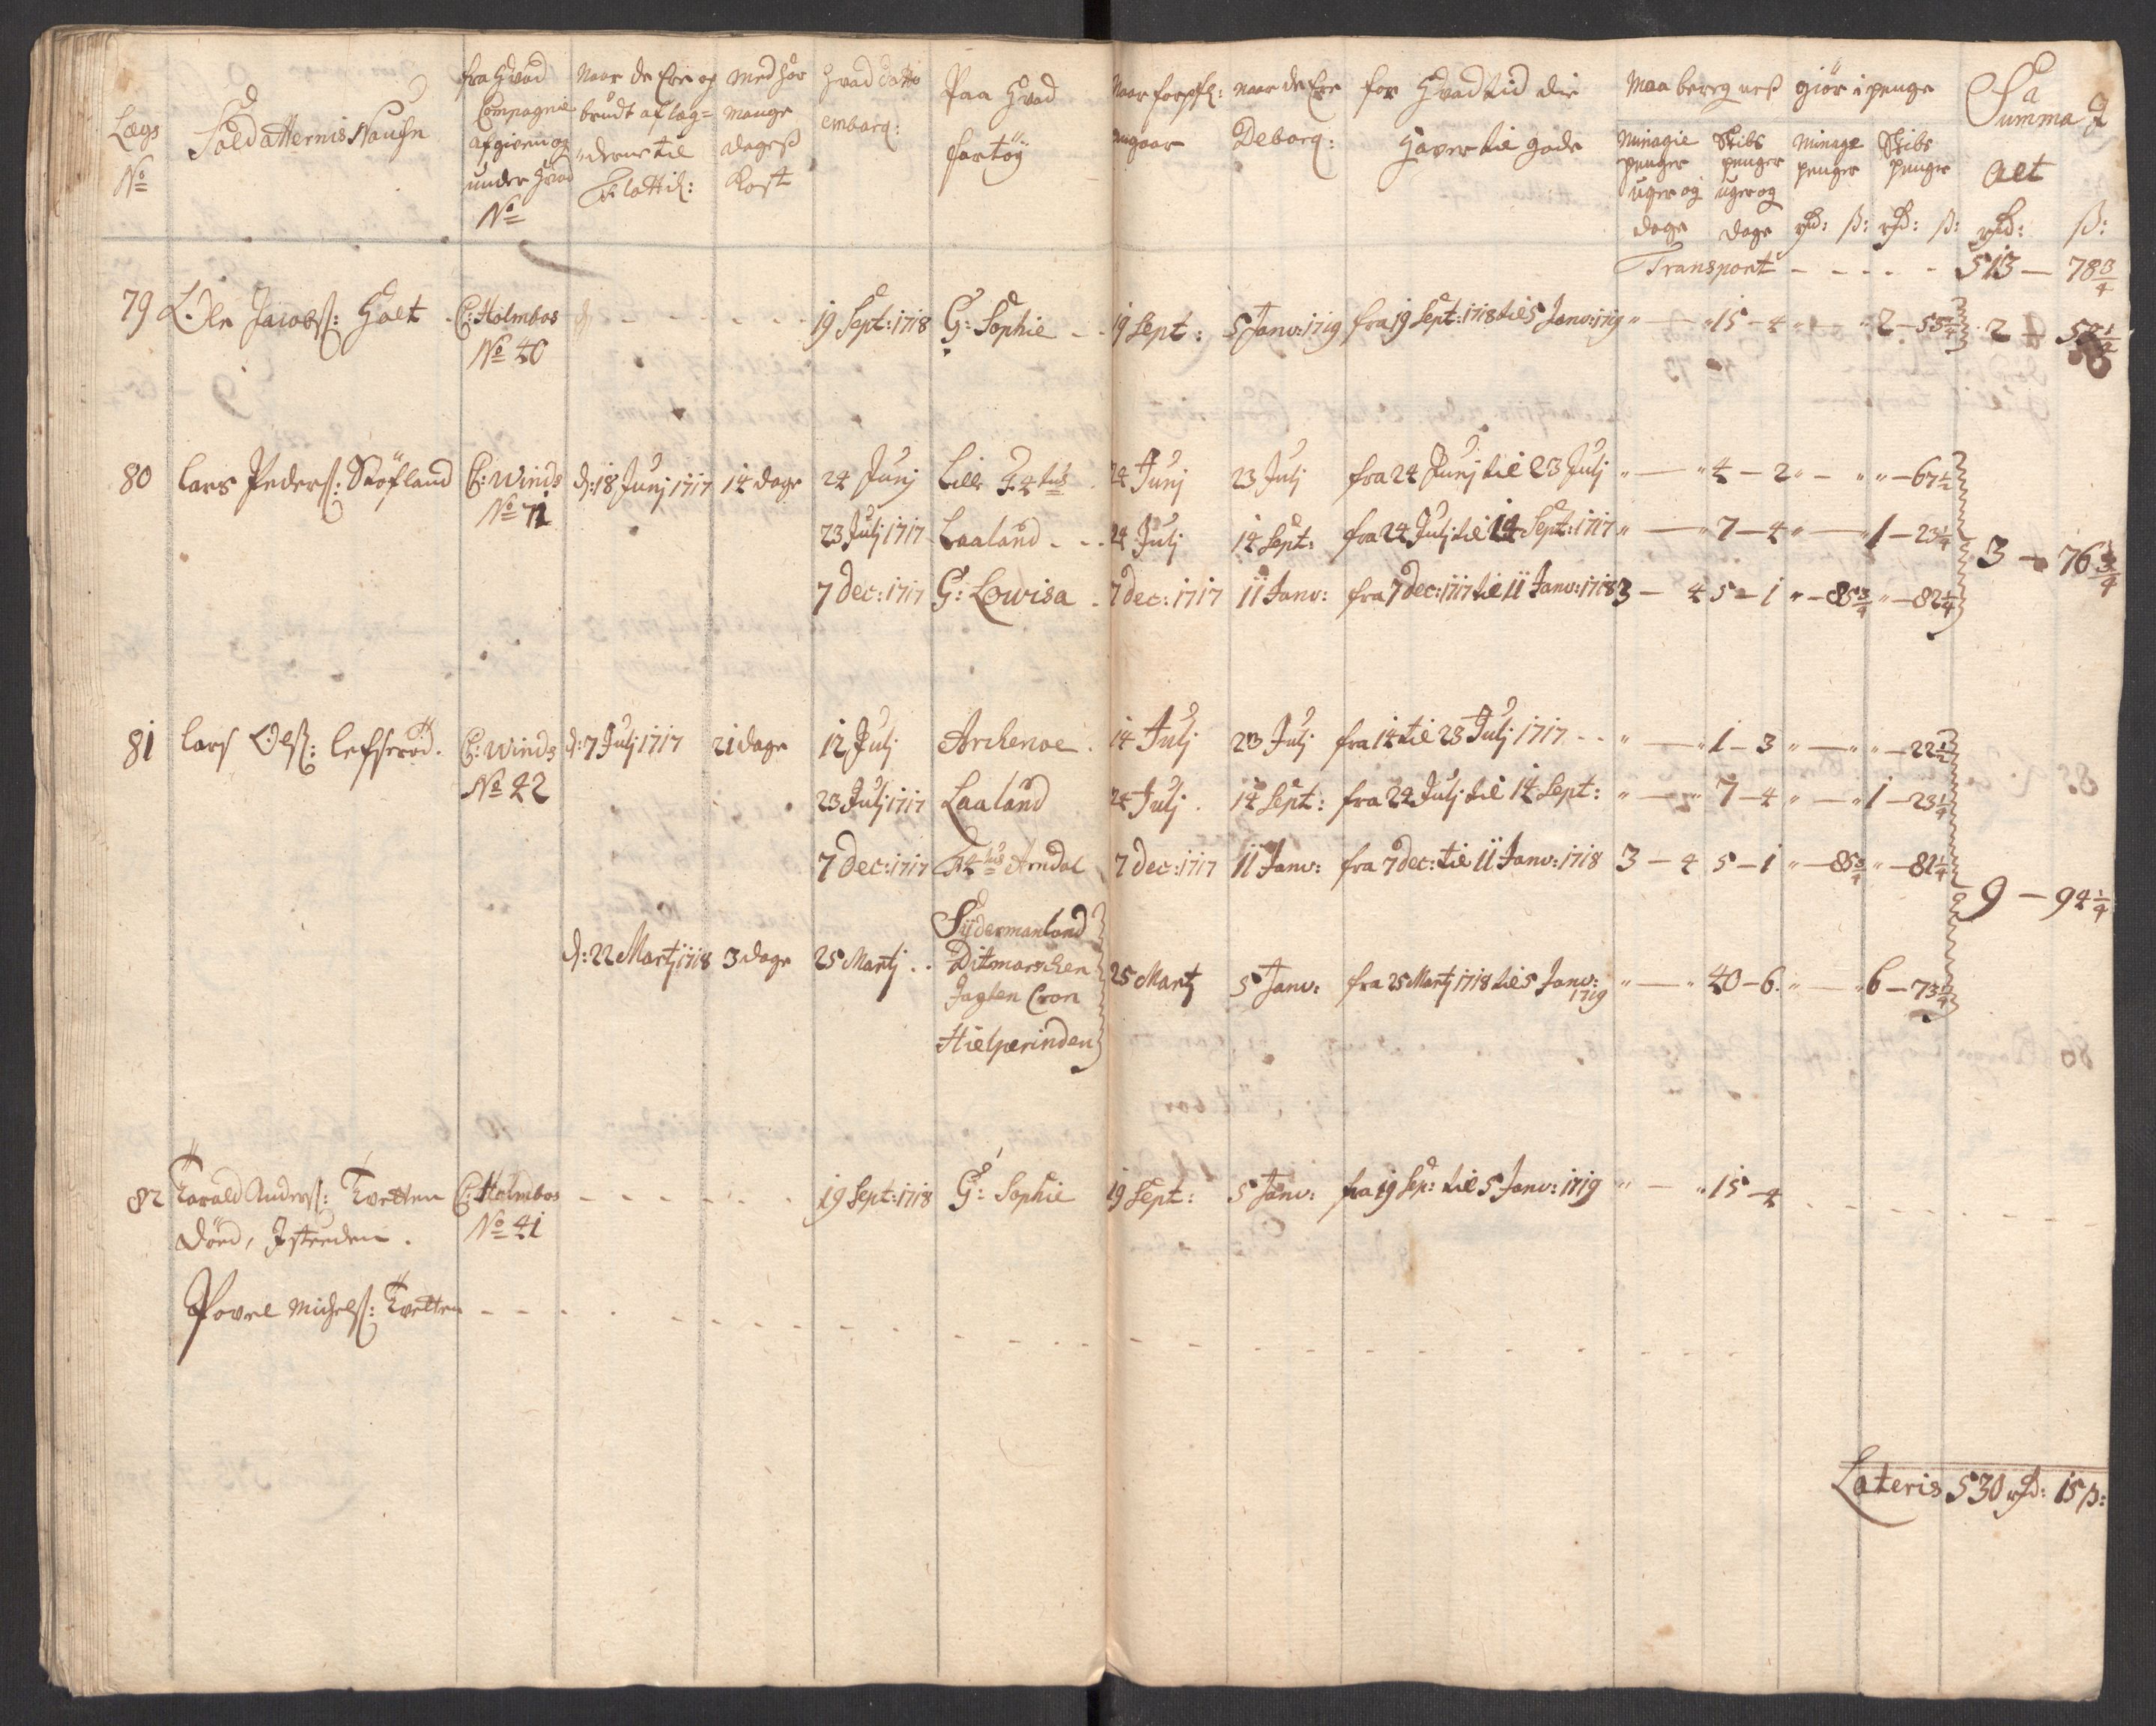 Lægs No
Soldatternis Naufn
fra Hvad Compagnie afgiven og under hvad No
Naar de Ere op brudt af læg= derne til Flottil:
Med hvor mange dagess Kost
Hvad dato embarq:
Paa Hvad fartøy
Naar forpfl: angaar
naar de Ere Debarq:
for Hvad tid die Haver til gode
Maa bereg ness giör i penge
Minagie penger uger og dage
Skibs penger uger og dage
Minage penger rd: ß:
Skibs penger rd: ß:
Summa alt rd: ß:
Transport - - - - - 513 - 78 3/4
79 Ole Jacobs: Holt C: Holmboe d: - - - - - 19 Sept: 1718 G: Sophie - - 19 Sept: 5 Janv: 1719 fra 19 Sept: 1718 til 5 Janv: 1719 " — " 15 - 4 " — " 2 - 2
No 40
80 Lars Peders: Sköfland C: Winds d: 18 Junj 1717 14 dage 24 Junj Lille 24 Junj 23 Julj fra 24 Junj til 23 Julj " — " 4 - 2 " - " " - 67 1/2
No 71
23 Julj 1717 Laaland - - 24 Julj 14 Sept: fra 24 Julj til 14 Sept: 1717 " — " 7 - 4 " — " 1 - 23 1/4
3 - 76 3/4
7 dec: 1717 G: Lowisa - 7 dec: 1717 11 Janv: fra 7 dec: 1717 til 11 Janv: 1718 3 - 4 5 - 1 " - 85 3/4 " - 82 1/4
81 Lars Ols: C: Winds d: 7 Julj 1717 21 dage 12 Julj Archenoe . 14 Julj 23 Julj fra 14 til 23 Julj 1717 - - " — " 1 - 3 " — " " - 22 1/2
No 42
23 Julj 1717 Laaland 24 Julj . 14 Sept: fra 24 Julj til 14 Sept: " — " 7 - 4 " — " 1 - 23 1/4
7 dec: 1717 Arndal 7 dec: 1717 11 Janv: fra 7 dec: til 11 Janv: 1718 3 - 4 5 - 1 " - 85 3/4 " - 81 1/4
9 - 94 1/4
Sydermanland
d: 22 Martj 1718 3 dage 25 Martj . . Ditmarschen 25 Martj 5 Janv: fra 25 Martj 1718 til 5 Janv: 1719 " — " 40 - 6. " — " 6 - 73 1/4
Jagten Cron
Hielperinden
82 Harald Anders: Tvetten C: Holmboe - - - - - - 19 Sept: 1718 G: Sophie 19 Sept: 5 Janv: fra 19 Sep: til 5 Janv: 1719 " — " 15 - 4 - - - - - -
död, Isteeden . No 41
Povel Michels: Tvetten - - - - - - - - - - - - - - - -
Lateris 530 rd: 15 ß: